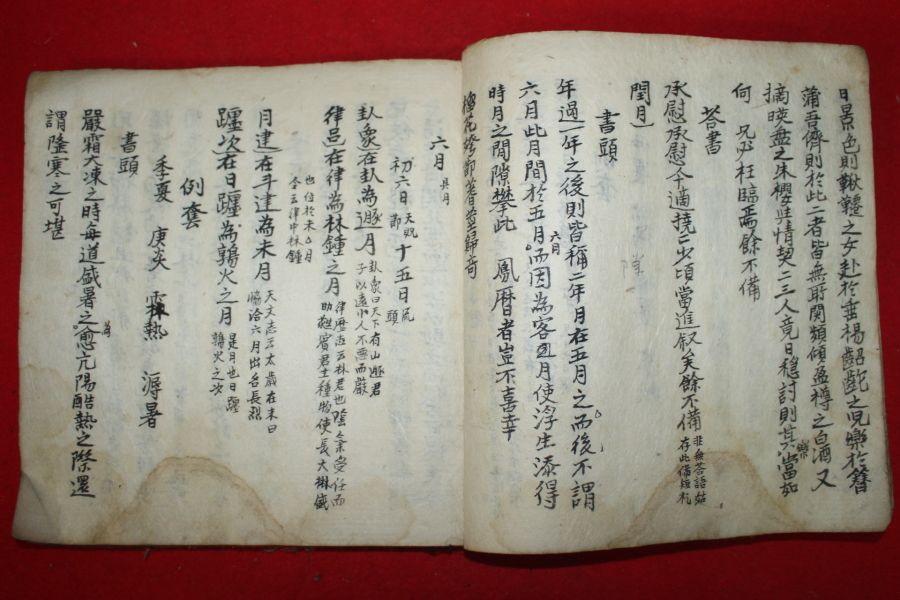 日景色則鞦韆之女赴於垂楊齠齔之児樂於簪
蒲吾儕則於此二者皆無所関類傾盈樽之白酒又
摘暎盘之朱櫻与情契二三人竟日穏討則其樂當如
何 兄必枉臨焉餘不備
荅書
承慰承慰今適撓二少頃當進叙矣餘不備 非無荅語姑
存此備短札
閏月
書頭
年過一年之後則皆稱二年月在五月之而後不謂
六月此月間於五月六月而因為客囬月使浮生添得
時月之間隙攀此 鳳曆者豈不喜幸
榴花
六月 具月
初六日 天貺
節 十五日 流
頭
卦象在卦為遯月 卦象曰天下有山遯君
子以遠小人不悪而嚴
律邑在律為林鍾之月 律歷志云林君也陰氣受任而
助蕤賓君主種物使長大楙盛
也位於未六月
令云律中林鍾
月建在斗建為未月 天文志云太歳在未曰
協洽六月出名長烈
躔次在日躔為鶉火之月 是月也日躔
鶉火之次
例套
季夏 庚炎 霖熱 溽暑
書頭
嚴霜大凍之時每道盛暑之愈苦亢陽酷熱之際還
謂隆寒之可堪